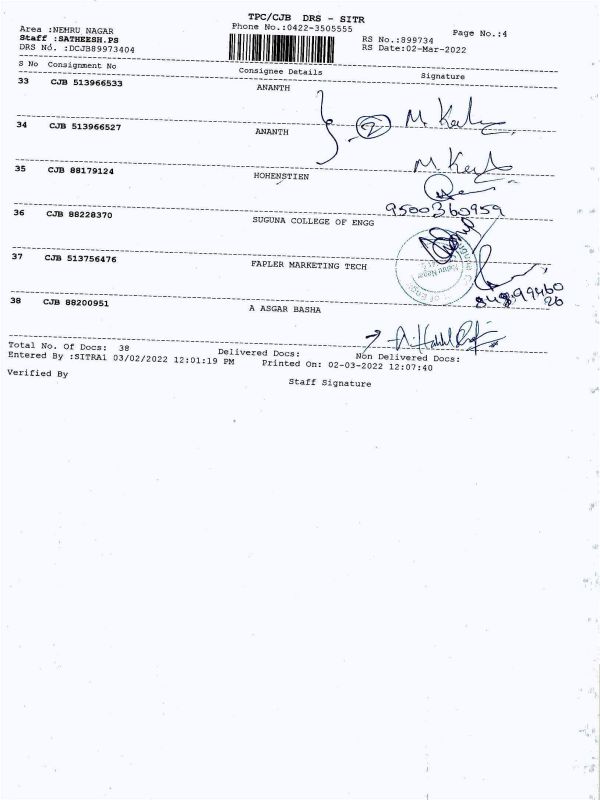 TPC/CJB DRS - SITR
Area :NEMRU NAGAR Phone No.:0422-3505555 Page No.:4
Staff :SATHEESH.PS RS No.:899734
DRS No. :DCJB89973404 RS Date:02-Mar-2022
S No Consignment No Consignee Details Signature
33 CJB 513966533 ANANTH
34 CJB 513966527 ANANTH
35 CJB 88179124 HOHENSTIEN
9500360959
36 CJB 88228370 SUGUNA COLLEGE OF ENGG
Nehru Nagar
37 CJB 513756476 FAPLER MARKETING TECH
38 CJB 88200951 A ASGAR BASHA
Total No. Of Docs: 38 Delivered Docs: Non Delivered Docs:
Entered By :SITRA1 03/02/2022 12:01:19 PM Printed On: 02-03-2022 12:07:40
Verified By Staff Signature